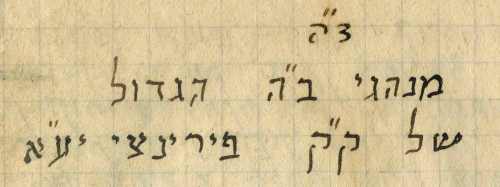 צ״ה
מנהגי ב״ה הגדול
של ק״ק פירינצי יע״א